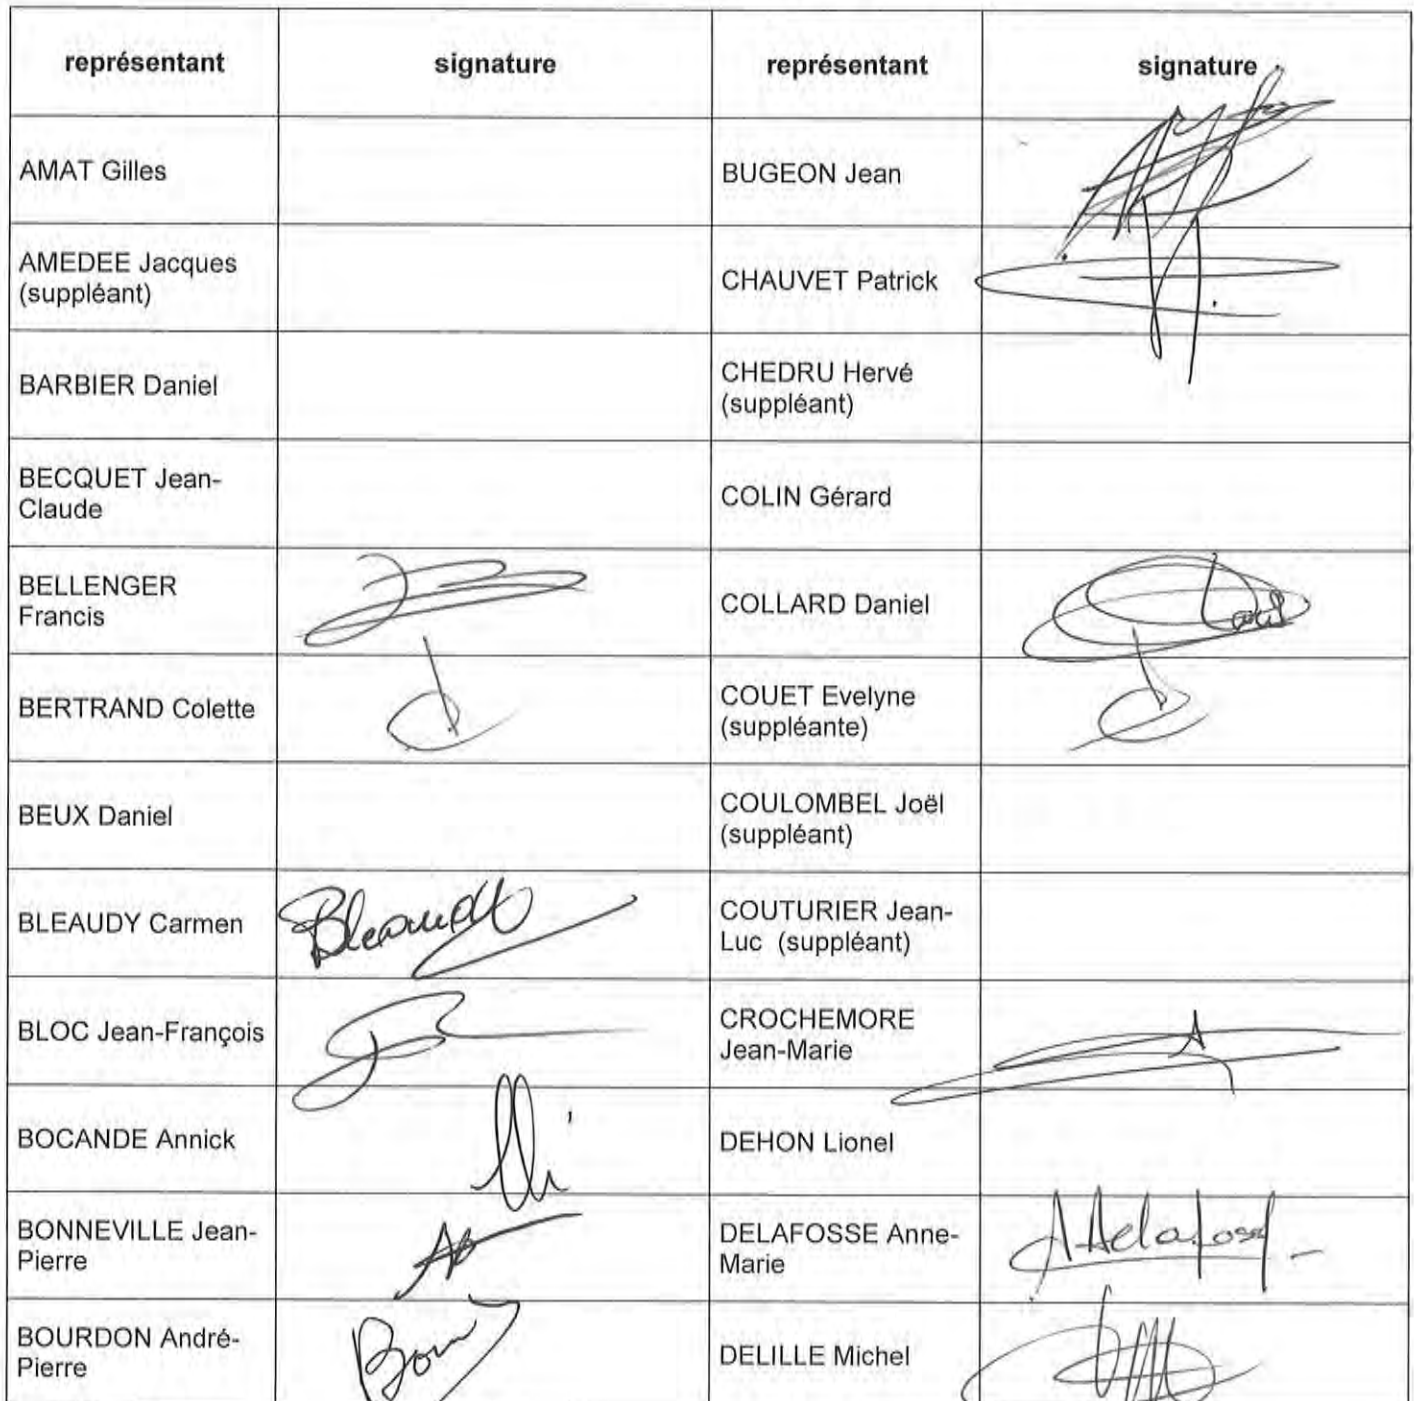 représentant signature représentant signature
AMAT Gilles
BUGEON Jean
AMEDEE Jacques
(suppléant)
CHAUVET Patrick
BARBIER Daniel
CHEDRU Hervé
(suppléant)
BECQUET Jean-
Claude
COLIN Gérard
BELLENGER
Francis
COLLARD Daniel
BERTRAND Colette
COUET Evelyne
(suppléante)
BEUX Daniel
COULOMBEL Joël
(suppléant)
BLEAUDY Carmen
Bleaudy
COUTURIER Jean-
Luc (suppléant)
BLOC Jean-François
CROCHEMORE
Jean-Marie
BOCANDE Annick
DEHON Lionel
BONNEVILLE Jean-
Pierre
DELAFOSSE Anne-
Marie
Delafosse
BOURDON André-
Pierre
DELILLE Michel